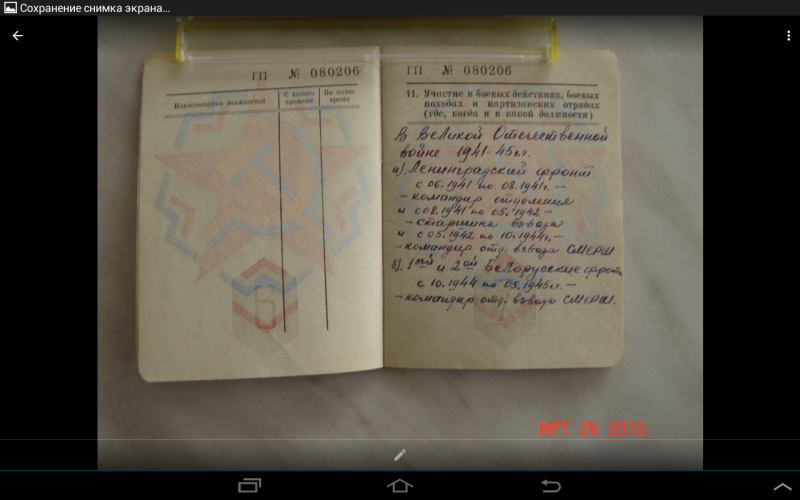 Сохранение снимка экрана...
ГП № 080206
Наименование должностей
С какого времени
По какое время
ГП № 080206
11. Участие в боевых действиях, боевых
походах и партизанских отрядах
(где, когда и в какой должности)
В Великой Отечественной
войне 1941-45г.г.
а). Ленинградский фронт
с 06.1941 по 08.1941г. —
- командир отделения
и с 08.1941 по 05.1942 -
- старшина взвода
и с 05.1942 по 10.1944г. -
- командир отд. взвода СМЕРШ
б). 1ый и 2ой Белорусские фронты
с 10.1944 по 05.1945г. —
- командир отд. взвода СМЕРШ.
МРТ 24 2015